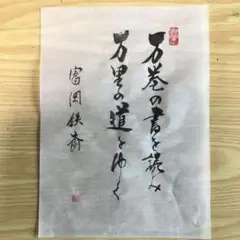 万巻の書を読み
万里の道をゆく
富岡鉄斎